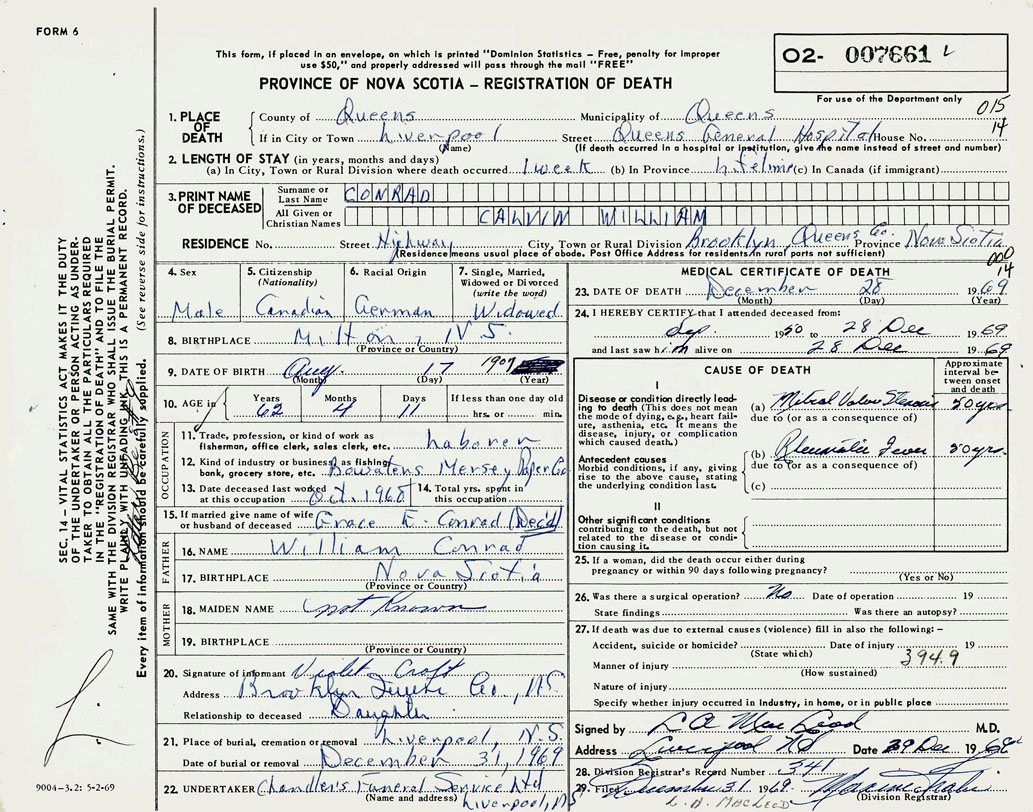 FORM 6
This form, if placed in an envelope, on which is printed "Dominion Statistics – Free, penalty for improper
use $50," and properly addressed will pass through the mail "FREE"
PROVINCE OF NOVA SCOTIA – REGISTRATION OF DEATH
O2- 007661
For use of the Department only
015
14
1. PLACE OF DEATH
County of Queens Municipality of Queens
If in City or Town Liverpool Street Queens General Hospital House No.
(Name) (If death occurred in a hospital or institution, give the name instead of street and number)
2. LENGTH OF STAY (in years, months and days)
(a) In City, Town or Rural Division where death occurred 1 week (b) In Province Lifetime (c) In Canada (if immigrant)
3. PRINT NAME OF DECEASED
Surname or Last Name CONRAD
All Given or Christian Names CALVIN WILLIAM
RESIDENCE No. Street Highway City, Town or Rural Division Brooklyn, Queens Co. Province Nova Scotia
(Residence means usual place of abode. Post Office Address for residents in rural parts not sufficient)
000
14
4. Sex
Male
5. Citizenship (Nationality)
Canadian
6. Racial Origin
German
7. Single, Married, Widowed or Divorced (write the word)
Widowed
8. BIRTHPLACE Milton, N.S.
(Province or Country)
9. DATE OF BIRTH Aug. 17 1907
(Month) (Day) (Year)
10. AGE in Years Months Days If less than one day old
62 4 11 hrs. or min.
OCCUPATION
11. Trade, profession, or kind of work as fisherman, office clerk, sales clerk, etc. Laborer
12. Kind of industry or business as fishing, bank, grocery store, etc. Bowaters Mersey Paper Co
13. Date deceased last worked at this occupation Oct. 1968
14. Total yrs. spent in this occupation
15. If married give name of wife or husband of deceased Grace E. Conrad (Dec'd)
FATHER
16. NAME William Conrad
17. BIRTHPLACE Nova Scotia
(Province or Country)
MOTHER
18. MAIDEN NAME not known
19. BIRTHPLACE
(Province or Country)
20. Signature of informant Violet Croft
Address Brooklyn Queens Co., N.S.
Relationship to deceased Daughter
21. Place of burial, cremation or removal Liverpool, N.S.
Date of burial or removal December 31, 1969
22. UNDERTAKER Chandler's Funeral Service Ltd
(Name and address) Liverpool, NS
MEDICAL CERTIFICATE OF DEATH
23. DATE OF DEATH December 28 1969
(Month) (Day) (Year)
24. I HEREBY CERTIFY that I attended deceased from:
Sep. 1950 to 28 Dec 1969
and last saw him alive on 28 Dec 1969
CAUSE OF DEATH
Approximate interval between onset and death
I
Disease or condition directly leading to death (This does not mean the mode of dying, e.g., heart failure, asthenia, etc. It means the disease, injury, or complication which caused death.)
(a) Mitral Valve Stenosis 50 yrs
due to (or as a consequence of)
Antecedent causes
Morbid conditions, if any, giving rise to the above cause, stating the underlying condition last.
(b) Rheumatic Fever 50 yrs.
due to (or as a consequence of)
(c)
II
Other significant conditions contributing to the death, but not related to the disease or condition causing it.
25. If a woman, did the death occur either during pregnancy or within 90 days following pregnancy?
(Yes or No)
26. Was there a surgical operation? No Date of operation 19
State findings Was there an autopsy?
27. If death was due to external causes (violence) fill in also the following: –
Accident, suicide or homicide? Date of injury 19
(State which) 394.9
Manner of injury
(How sustained)
Nature of injury
Specify whether injury occurred in industry, in home, or in public place
Signed by L A MacLeod M.D.
Address Liverpool NS Date 29 Dec 1969
28. Division Registrar's Record Number 341
29. Filed December 31 1969
(Division Registrar)
L. A. MACLEOD
SEC. 14 – VITAL STATISTICS ACT MAKES IT THE DUTY
OF THE UNDERTAKER OR PERSON ACTING AS UNDER-
TAKER TO OBTAIN ALL THE PARTICULARS REQUIRED
IN THE "REGISTRATION OF DEATH" AND TO FILE THE
SAME WITH THE DIVISION REGISTRAR WHO SHALL ISSUE THE BURIAL PERMIT.
WRITE PLAINLY WITH UNFADING INK. THIS IS A PERMANENT RECORD.
Every item of information should be carefully supplied. (See reverse side for instructions.)
9004-3.2: 5-2-69